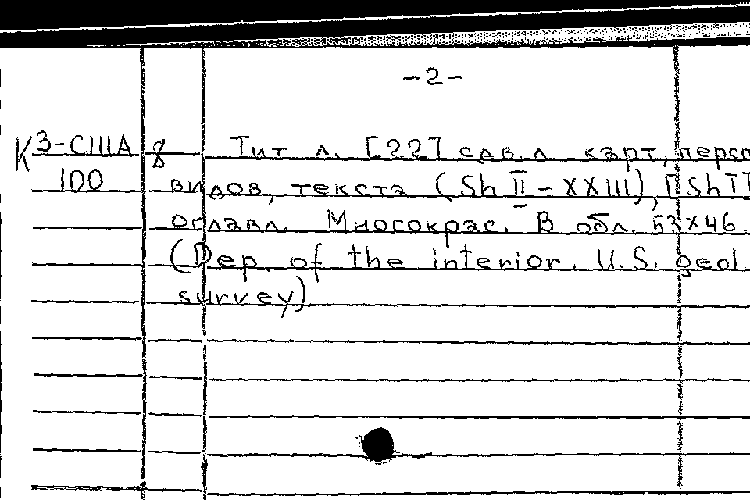 -2-
К 3-США 8 Тит л. [22] сдв.л карт, персп
100 видов, текста (Sh II-XXIII), [Sh II
оглавл. Многокрас. В обл. 53x46.
(Dep. of the interior. U.S. geol.
survey)